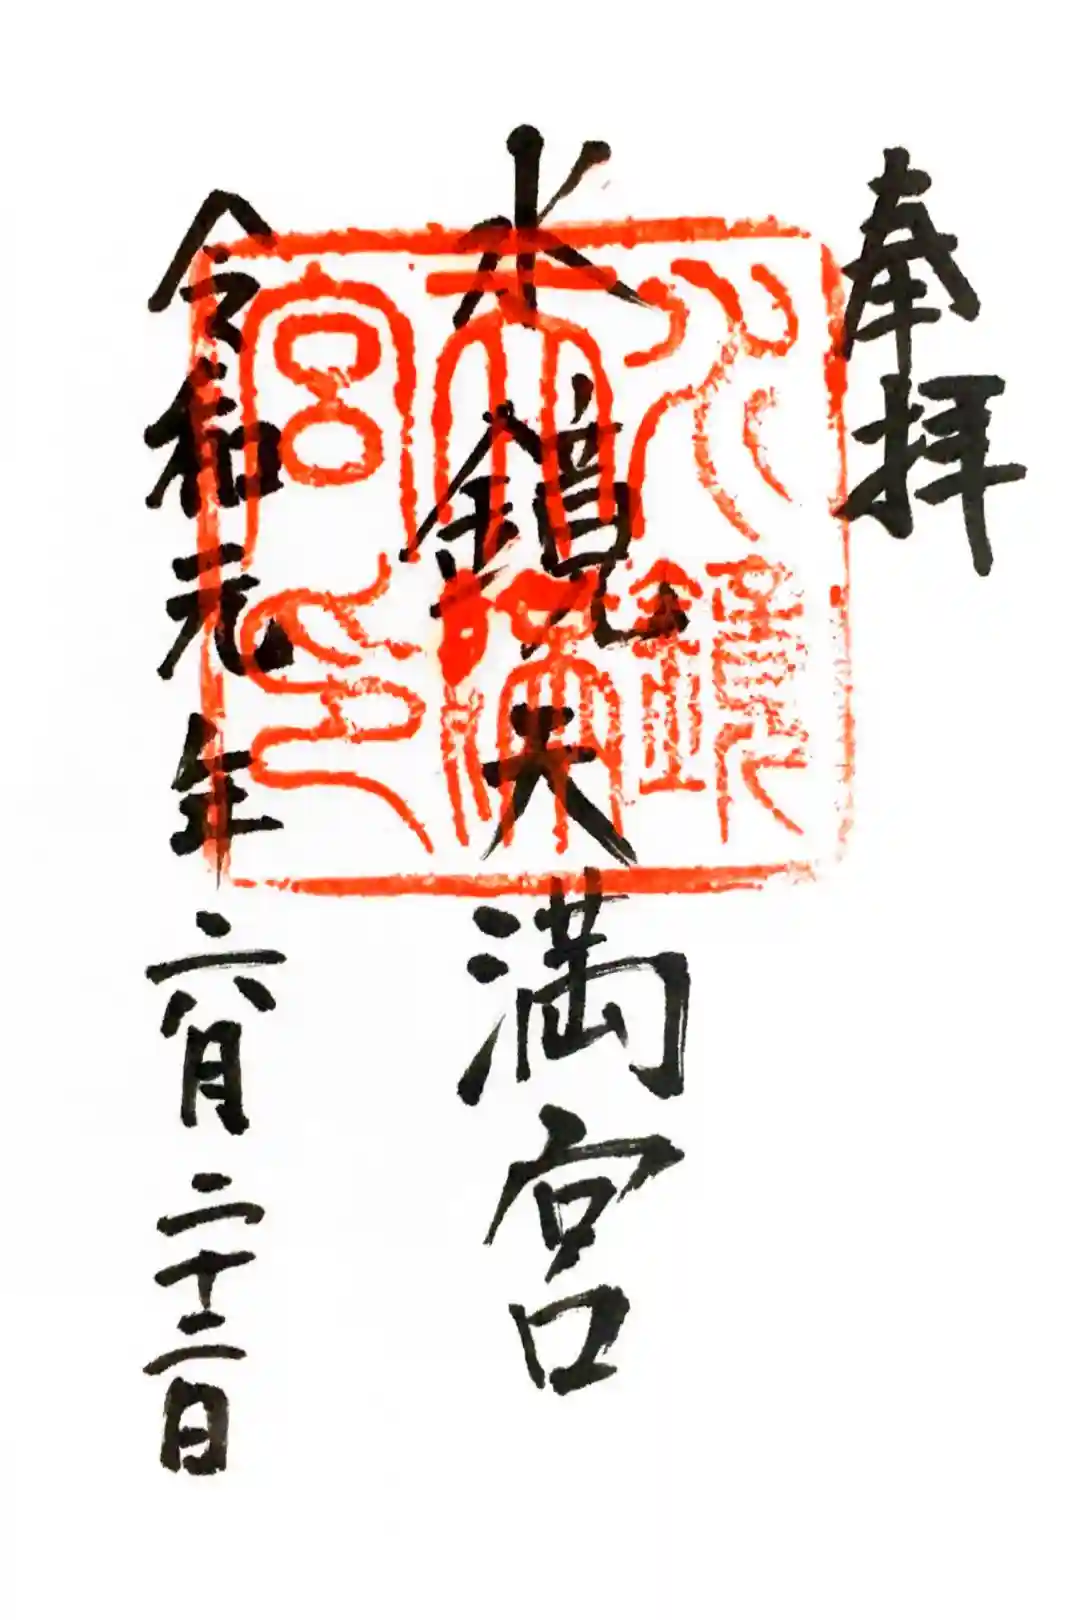 奉拝
水鏡天満宮
令和元年六月二十二日
水鏡天満宮印